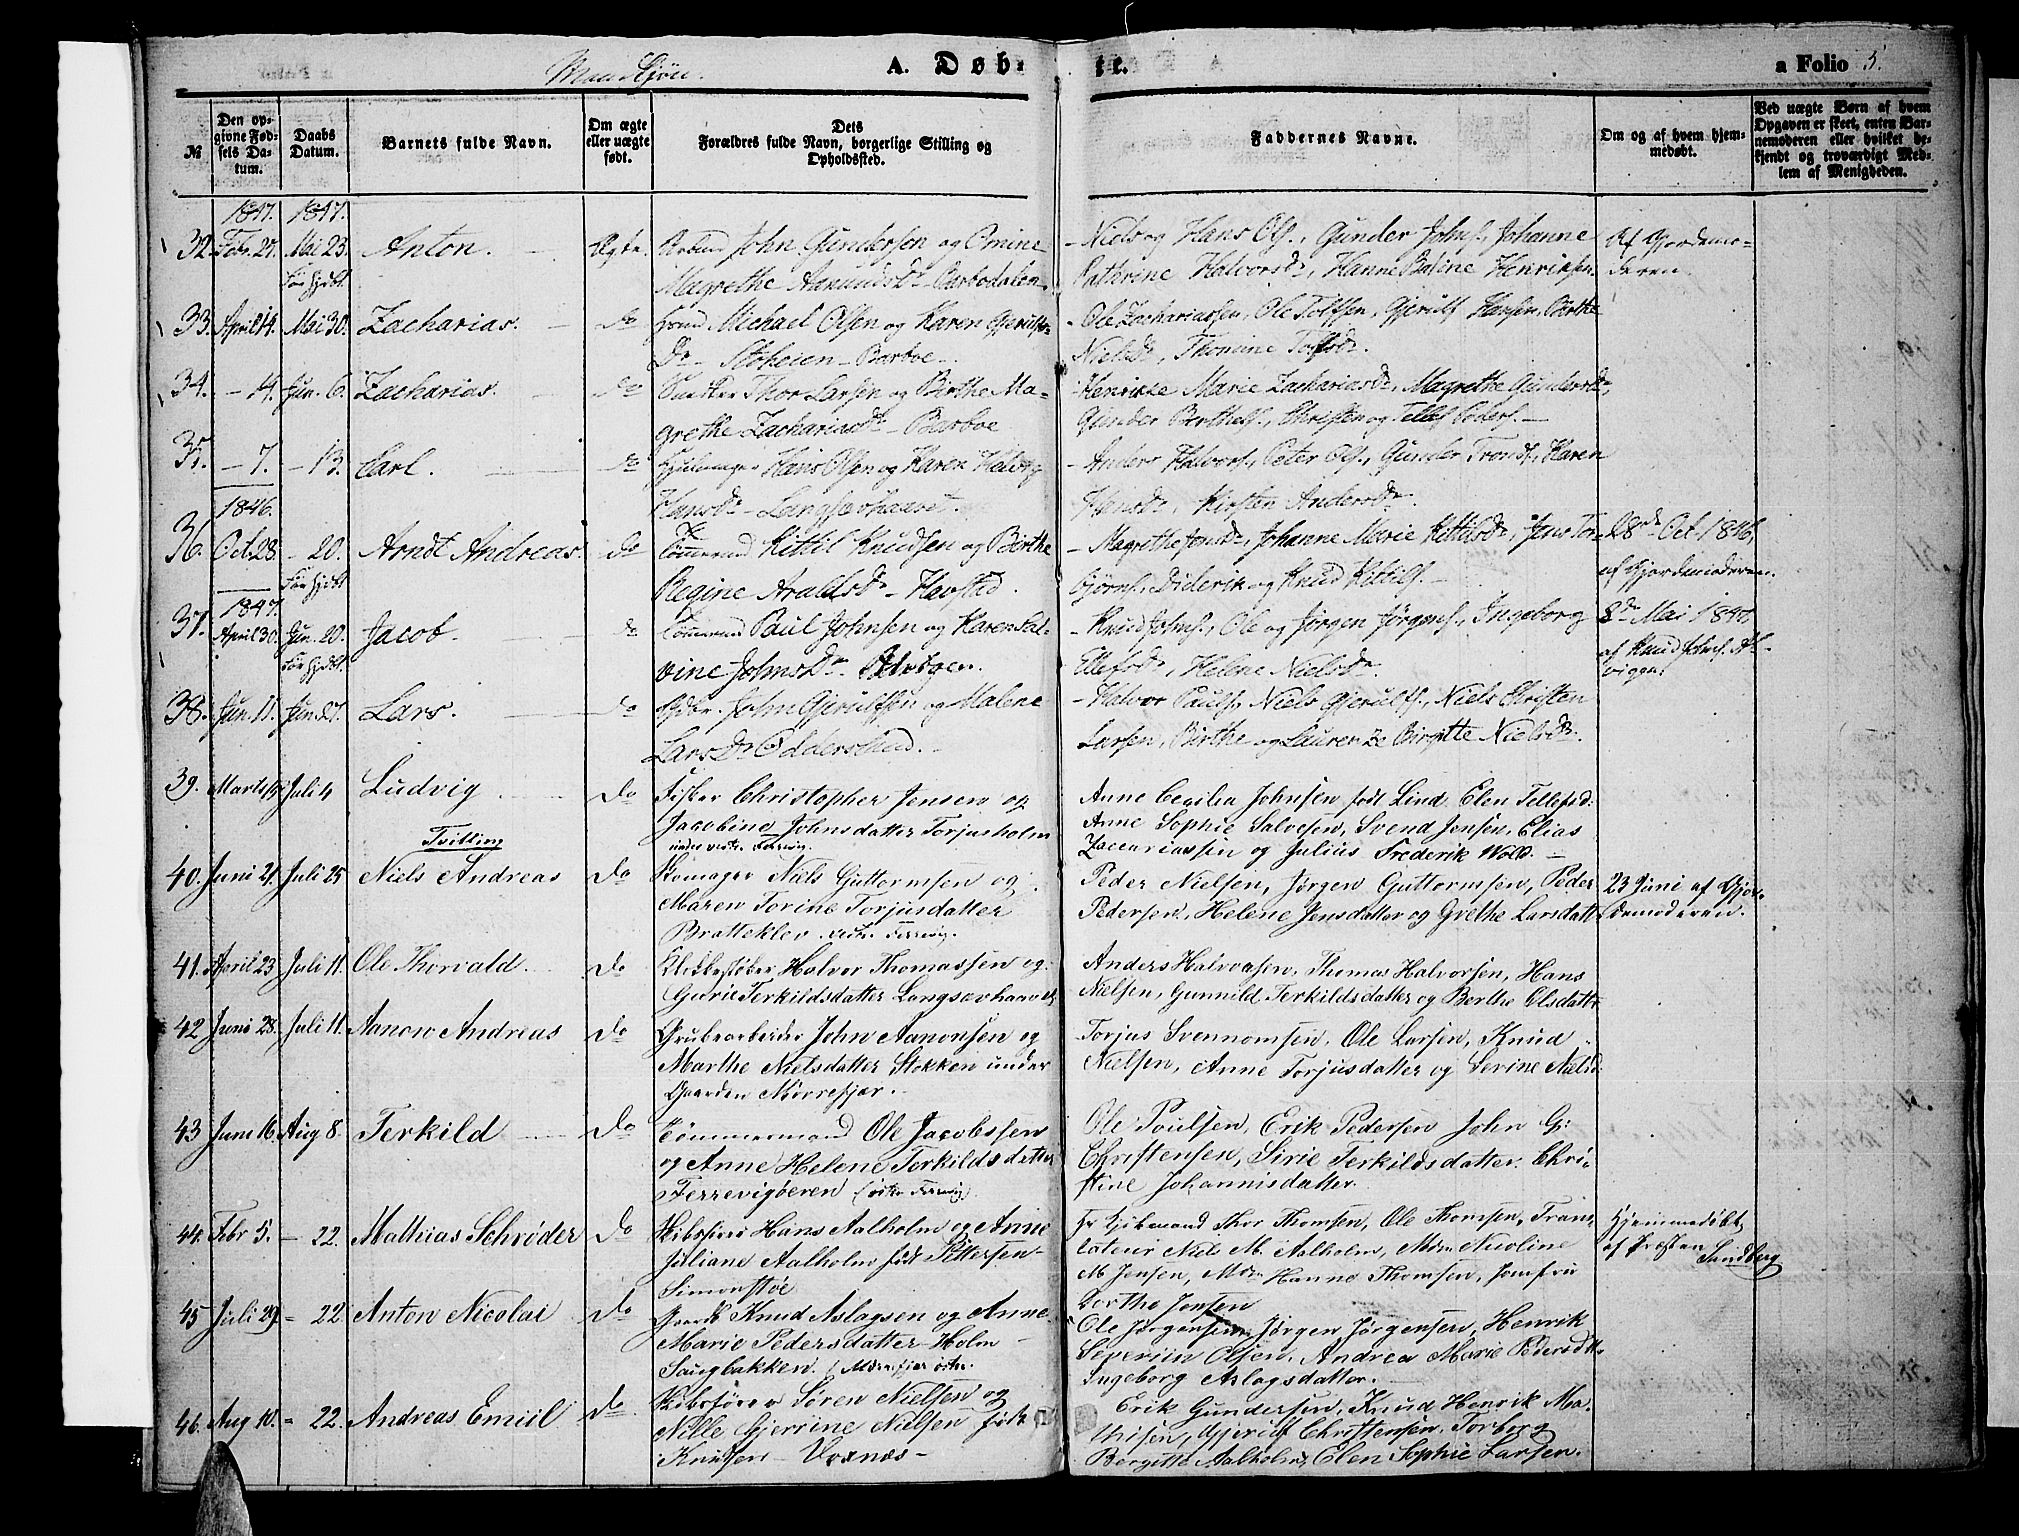 Mandkjøn.
A. Døbte.
a Folio 5.
№
Den opgivne Fødsels Datum.
Daabs Datum.
Barnets fulde Navn.
Om ægte eller uægte født.
Dets Forældres fulde Navn, borgerlige Stilling og Opholdsted.
Faddernes Navne.
Om og af hvem hjemmedøbt.
Ved uægte Børn af hvem Opgaven er skeet, enten Barnemoderen eller hvilket bekjendt og troværdigt Medlem af Menigheden.
1847. 1847.
32. Febr. 27. Mai 23. Anton. Ægte. John Gundersen og Omine
Før hjdbt. Magrethe Aamundsdr
Niels og Hans Ols., Gunder Johns., Johanne
Cathrine Halvorsdr, Hanne Henriksen
Af Gjordemoderen
33. April 14. Mai 30. Zacharias. do Michael Olsen og Karen Gjerulfs-
Dr Stoheien - Barboe.
Ole Zachariassen, Ole Tolfsen, Gjerulf Hansen, Birthe
Nielsdr, Thomine Tolfsdr.
34. - 14. Jun. 6. Zacharias. do Thor Larsen og Birthe Ma-
grethe Zachariasdr - Barboe
Henrikke Marie Zachariasdr, Magrethe Gundersdr,
Gunder Berthels., Christen og Tellef Peders.
35. - 7. - 13. Carl. do Hjulmager Hans Olsen og Karen Helvig
Hansdr - Langsævhaavet.
Anders Halvors., Peter Ols., Gunder Tronds., Karen
Hansdr, Kirsten Andersdr.
1846.
36. Oct. 28. - 20. Arndt Andreas. do Tømmermd Kittil Knudsen og Birthe
Før hjdbt Regine Araldsdr - Havstad.
Magrethe Jensdr, Johanne Marie Kittilsdr, Jens Tor-
bjørns., Diderik og Knud Kittils.
28de Oct. 1846,
af Gjordemoderen.
1847.
37. April 30. Jun. 20. Jacob. do Tømmermd Paul Johnsen og Karen Sal-
Før hjdbt. vine Johnsdr
Knud Johns., Ole og Jørgen Jørgens., Ingeborg
Ellefsdr, Helene Nielsdr.
8de Mai 1847
af Knud Johns.
38. Jun. 11. Jun. 27. Lars. do John Gjerulfsen og Malene
Larsdr
Halvor Pauls., Niels Gjerulfs., Niels Christen
Larsen, Birthe og Laurenze Birgitte Nielsdr.
39. Marts Juli 4 Ludvig do Fisker Christopher Jensen og
Jacobine Johnsdatter Torjusholm
under vestre Færevig.
Anne Cecilia Johnsen født Lind, Elen Tellefsd:
Anne Sophie Salvesen, Svend Jensen, Elias
Zaccariassen og Julius Frederik Wold.
Tvilling
40. Juni 21. Juli 25 Niels Andreas do Skomager Niels Guttormsen og
Maren Torine Torjusdatter
Bratteklev vestre Færevig.
Peder Nielsen, Jørgen Guttormsen, Peder
Pedersen, Helene Jensdatter og Grethe Larsdatt
23 Juni af Gjor-
demoderen.
41. April 23 Juli 11. Ole Thorvald do Klokkestøber Halvor Thomassen og
Gurie Terkildsdatter Langsævhaavet
Anders Halvorsen, Thomas Halvorsen, Hans
Nielsen, Gunnild Terkildsdatter og Berthe Olsdattr
42 Juni 28. Juli 11. Aanon Andreas do Grubearbeider John Aanonsen og
Marthe Nielsdatter Stokken under
Gaarden Mørrefjær.
Torjus Svennomsen, Ole Larsen, Knud
Nielsen, Anne Torjusdatter og Serine Nielsd:
43 Juni 16. Aug 8. Terkild do Tømmermand Ole Jacobssen
og Anne Helene Terkildsdatter
Færrevigøeren (østre Færevig).
Ole Poulsen, Erik Pedersen John G:
Christensen, Sirie Terkildsdatter. Chri-
stine Johannisdatter.
44. Febr 5. - 22. Mathias Schrøder do Skibsfører Hans Aalholm og Anne
Juliane Aalholm født Pettersen
Simonstøe
Hr Kjøbmand Thor Thomsen, Ole Thomsen, Trans-
lateur Niels M. Aalholm, Mdm Nicoline
M Jensen, Mdm Hanne Thomsen, Jomfru
Dorthe Jensen
Hjemmedøbt
af Præsten
Sandberg
45 Juli 29. - 22. Anton Nicolai do Gaardb Knud Aslagsen og Anne
Marie Pedersdatter Holm
Saugbakken, (Mørrefjær østre.
Ole Jørgensen, Jørgen Jørgensen, Henrik
Severiin Olsen, Andrea Marie Pedersdtr
Ingeborg Aslagsdatter.
46. Aug 10. - 22. Andreas Emiil do Skibsfører Søren Nielsen og
Nille Gjerrine Nielsen født
Knudsen - Voxnæs -
Erik Gundersen, Knud Henrik Ma-
thisen, Gjeruld Christensen, Torborg
Bergitte Aalholm, Elen Sophie Larsen.